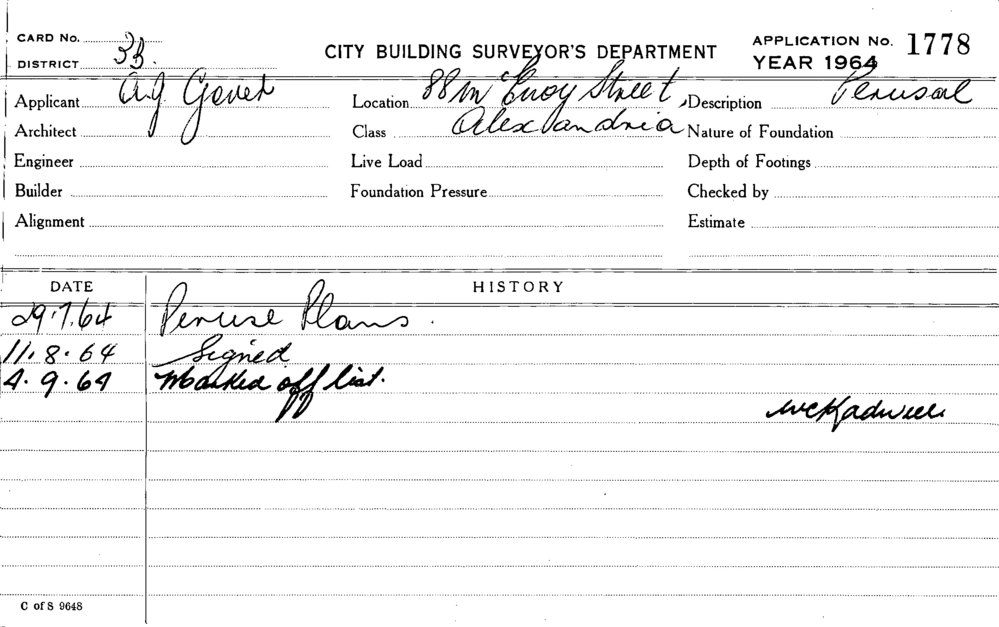 CARD No.
DISTRICT 3B.
CITY BUILDING SURVEYOR'S DEPARTMENT
APPLICATION No. 1778
YEAR 1964
Applicant A.J. Gover Location 88 McEvoy Street, Description Perusal
Architect Class Alexandria Nature of Foundation
Engineer Live Load Depth of Footings
Builder Foundation Pressure Checked by
Alignment Estimate
DATE HISTORY
29.7.64 Peruse Plans.
11.8.64 Signed
4.9.64 Marked off list.
C of S 9648